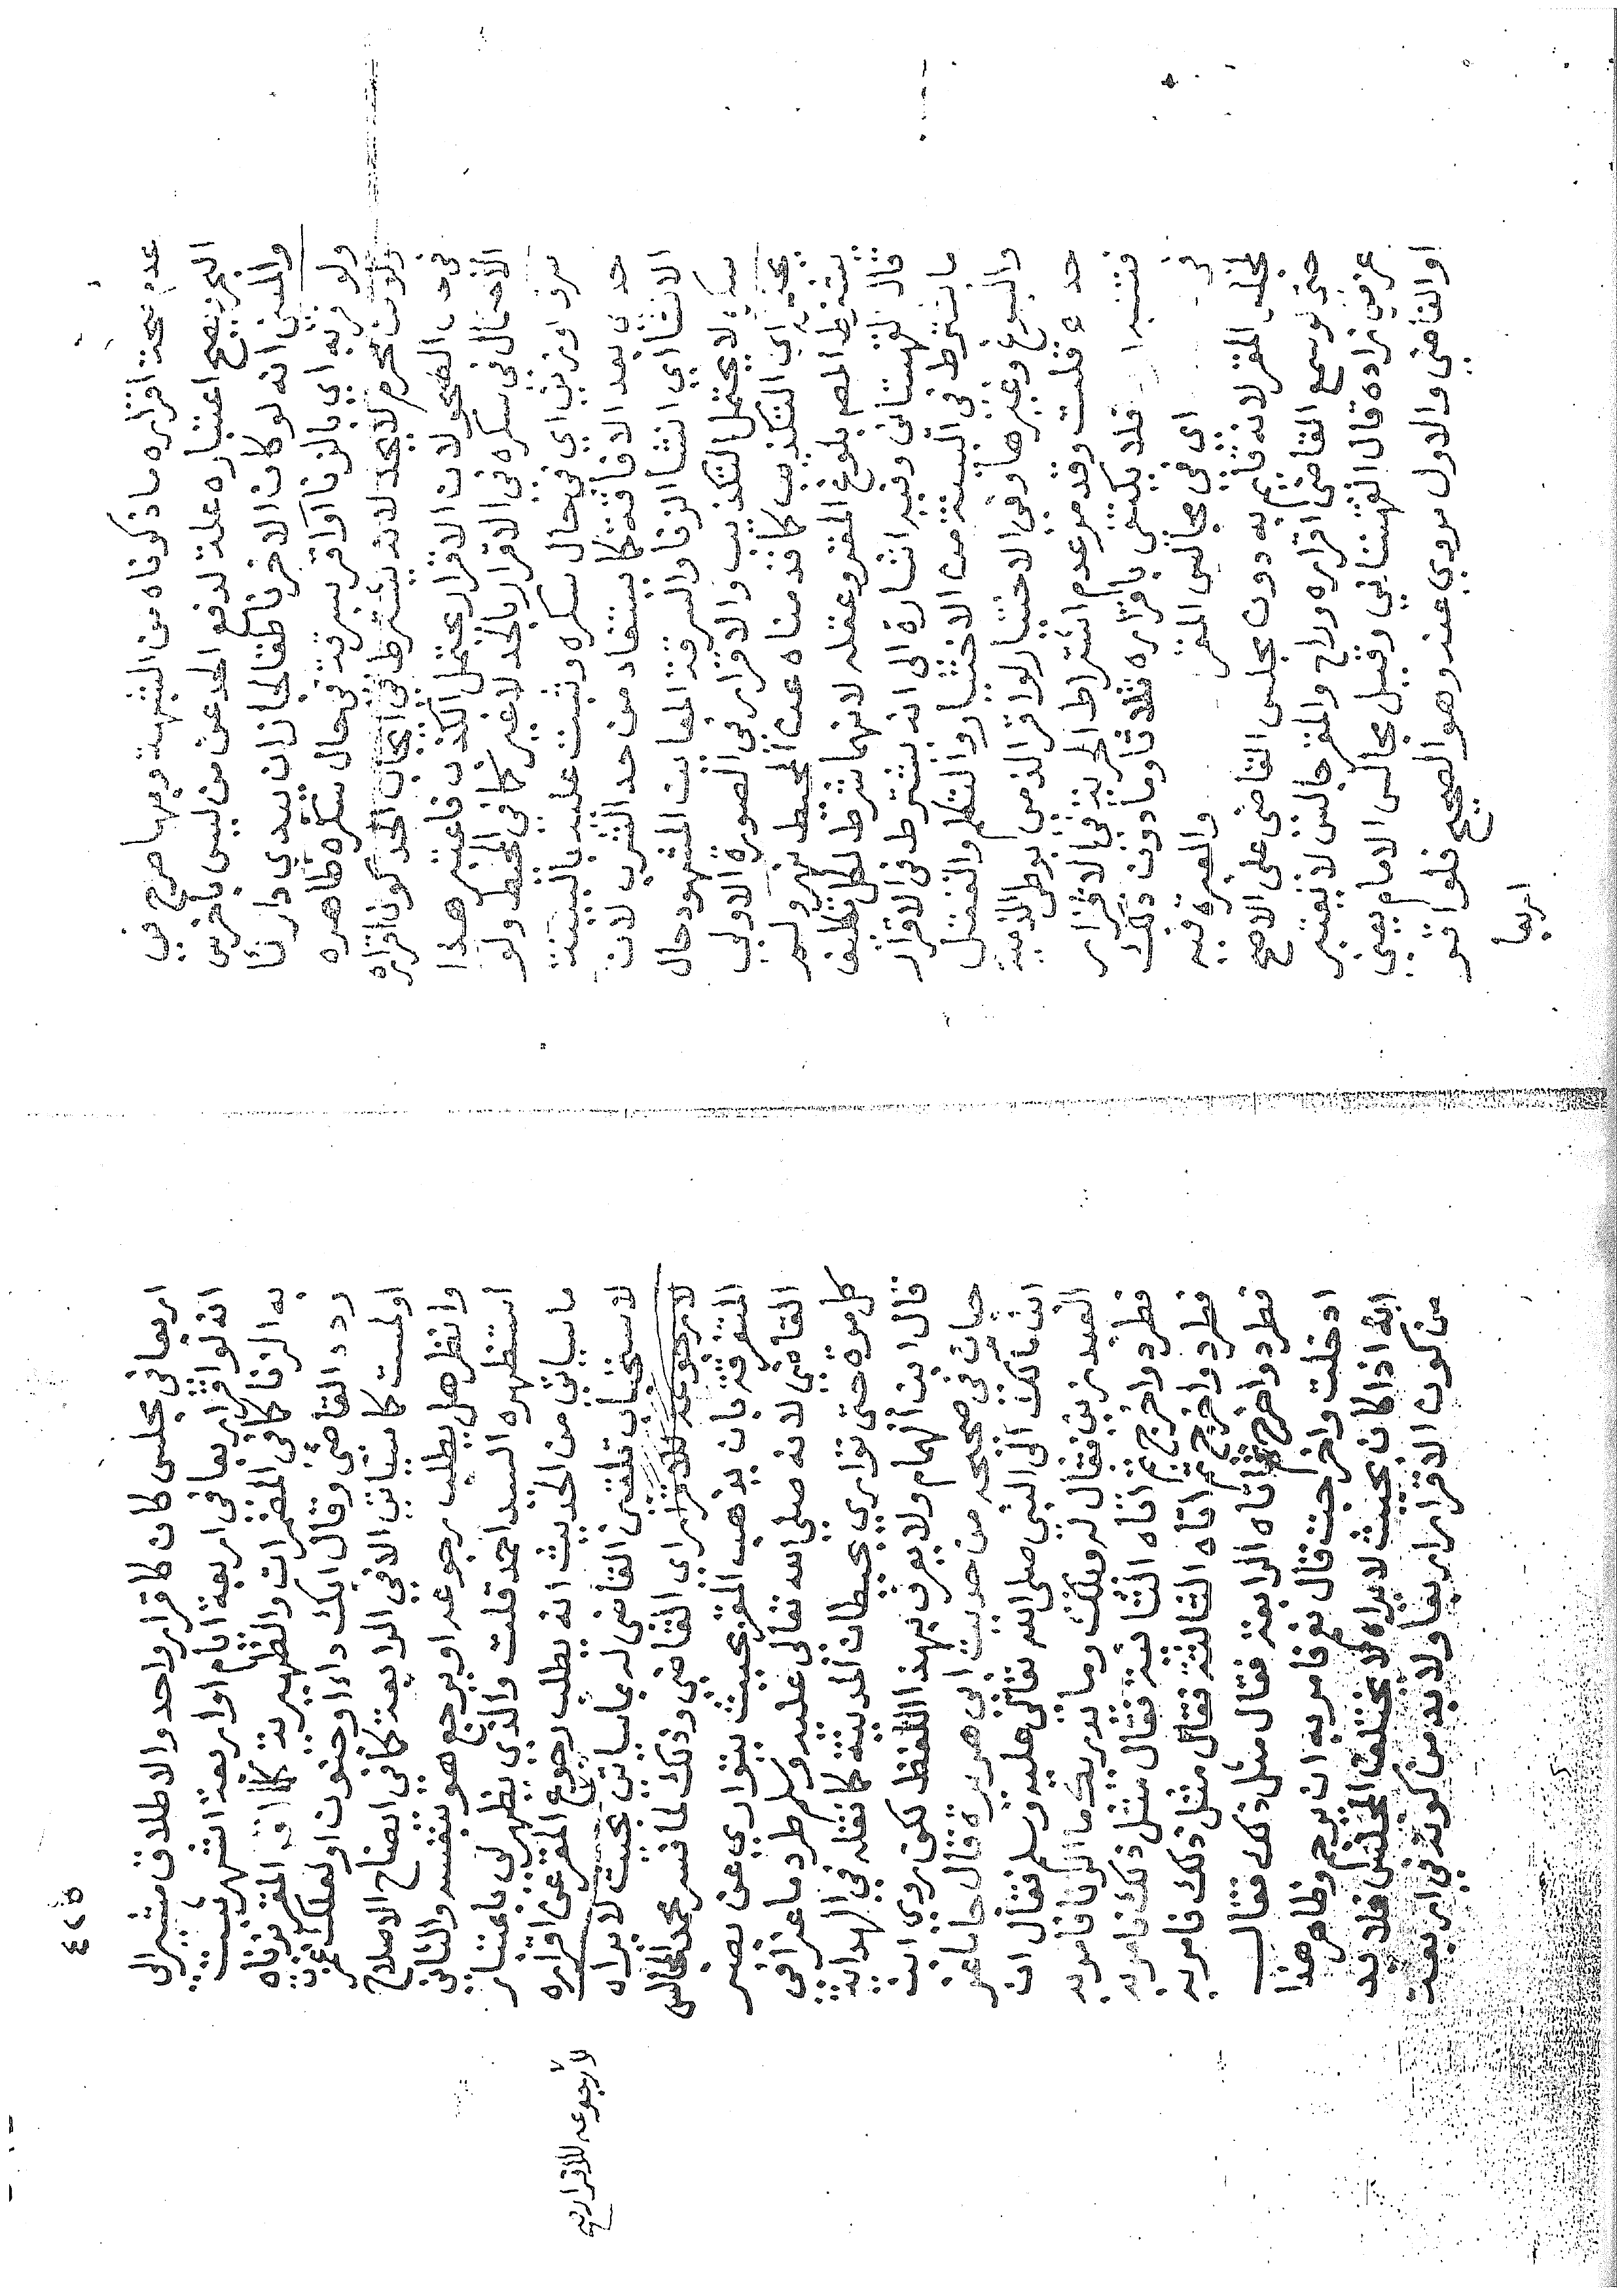 عدم صحة اقراره ما ذكرناه من الشبهة وبهما صرح في
اعتباره علة لدفع الحد عن من ليس باخرس
والمعنى انه لو كان الاخر ناطقا لجاز ان يبدى دارئا
ولو اقر به اى بالزنا او اقر بسرقة في حال سكره ظاهره
ولو بمحرم لا يحد لانه يشترط في ايجاب الحد كون اقراره
في حال الصحو لان الاقرار يحتمل الكذب فاعتبر هذا
الاحتمال في سكره في الاقرار بالحد لا غير كما في المحيط ولو
سرق او زنى اي في حال سكره وثبت عليه بالبينة
حد اى بعد الافاقة كما يستفاد من حد الشرب لان
الانشا اي انشا الزنا والسرقة المعاين المشهود حال
لا يحتمل التكذيب والاقرار في الصورة الاولى
يحتمله اي التكذيب كما قدمناه عن المحيط نهر ولم
يشترط المص بلوغ المقر وعقله لانهما شرط لكل تكليف
قال القهستاني وفيه اشارة الى انه يشترط في الاقرار
ما شرط في البينة من الاختيار والتكلم والتعقل
والبلوغ وغيرها وفي الاختيار لو اقر الذمى بوطى الذمية
حد قلت وقد مر عدم اشتراط الحرية في الاقرار
فتنبه فلا يكتفى باقراره ثلاثا وما دون ذلك
في اى في مجالس المقر والعبرة فيه
لمجلس المقر لانه قايم به دون مجلس القاضى على الاصح
حتى لو سمع القاضى اقراره وراح والمقر جالس لا يعتبر
عزمى زاده قال القهستاني وقيل مجالس الامام يعنى
او القاضى والاول مروى عنه وهو الصحيح فلو اقر
اربعا
٤٤٥
اربعا في مجلس كان كاقرار واحد والاطلاق مشير الى
انه لو اقر اربعا في اربعة ايام او اربعة اشهر يثبت
به الزنا كما في المضمرات والظهيرية كلما اقر المقر بزناه
رده القاضى وقال ابك داء او جنون او لعلك غمزت
او لمست كما سياتي الا في الرابعة كما في ايضاح الاصلاح
وانظر هل يطلب رجوعه او يرجع هو بنفسه والثاني
استظهره السيد احمد قلت والذي يظهر لى باعتبار
ما سياتي من الحديث انه يطلب رجوع المقر عن اقراره
لاستحباب تلقين القاضى له بما سياتي بحيث لا يراه
لا رجوعه للاقرار اى القاضي وذلك لما فسر محمد المجالس
المتفرقة بان يذهب المقر بحيث يتوارى عن بصر
القاضى لانه صلى الله تعالى عليه وسلم طرد ماعزا في
كل مرة حتى توارى بحيطان المدينة كما نقله في الهداية
قال ابن الهمام ولا يعرف بهذا اللفظ لكن روى ابن
حبان في صحيحه من حديث ابي هريرة قال جا ماعز
ابن مالك الى النبي صلى الله تعالى عليه وسلم فقال ان
العبد زنى فقال له ويلك وما يدريك ما الزنا فامر به
فطرد واخرج ثم اتاه الثانية فقال مثل ذلك فامر به
فطرد واخرج ثم اتاه الثالثة فقال مثل ذلك فامر به
فطرد واخرج ثم اتاه الرابعة فقال مثل ذلك فقال
ادخلت واخرجت قال نعم فامر به ان يرجم وظاهر هذا
انه اذا كان بحيث لا يراه لا يختلف المجلس فلا بد
من كون الاقرار اربعا ولا بد من كونه في اربعة
لا رجوعه للاقرار صح